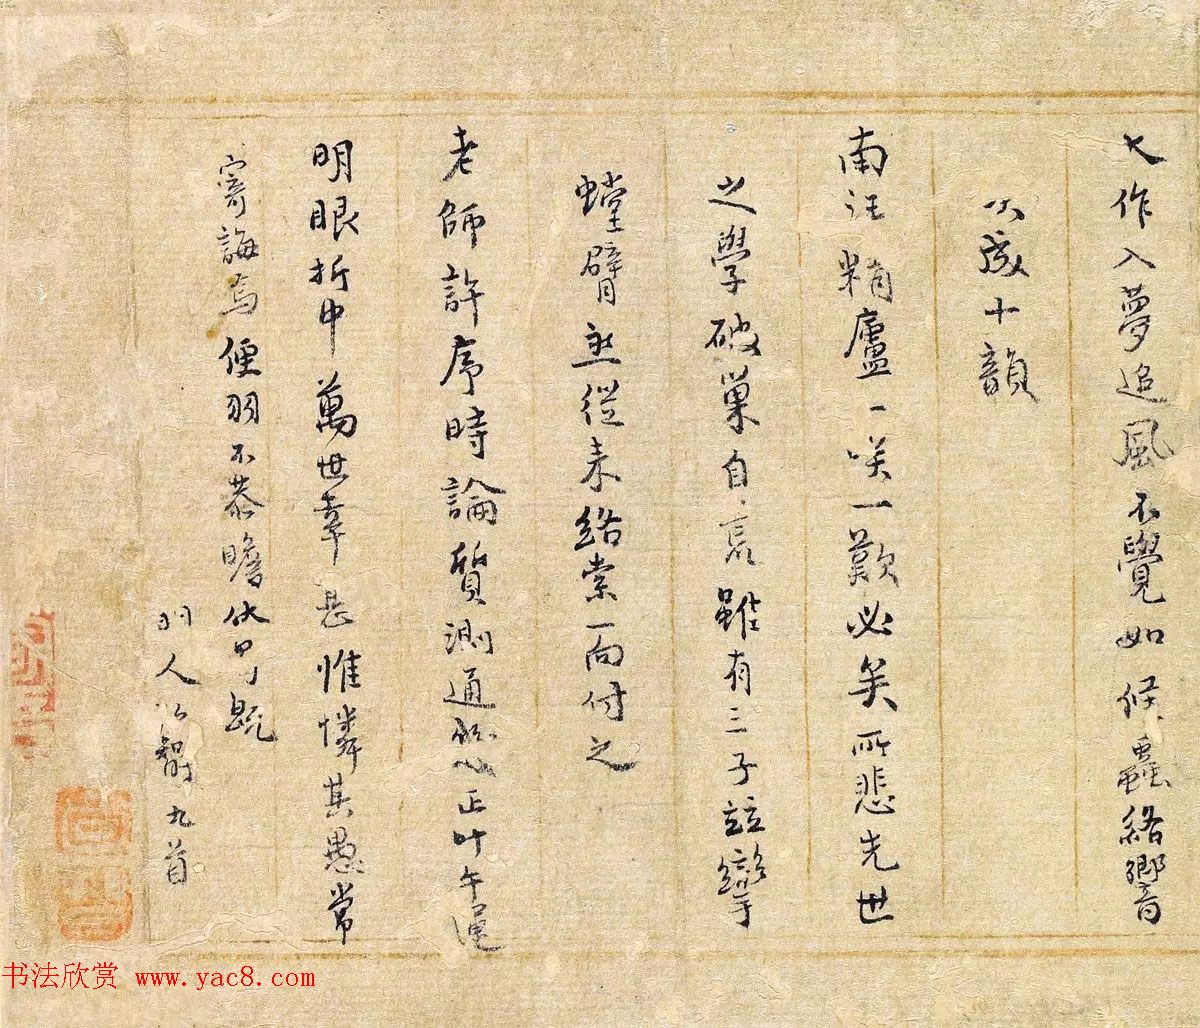 大作入夢追風不覺如候蟲絡響
次成十韻
精廬一咲一歎必矣所悲先世
之學破巢自哀雖有三子竝孿
螳臂丞從未絡索一向付之
老師許序時論質測通幾正叶午運
明眼折中萬世幸甚惟憐其愚常
寄誨焉便羽不恭瞻依曷既
人智九首
书法欣赏 www.yac8.com